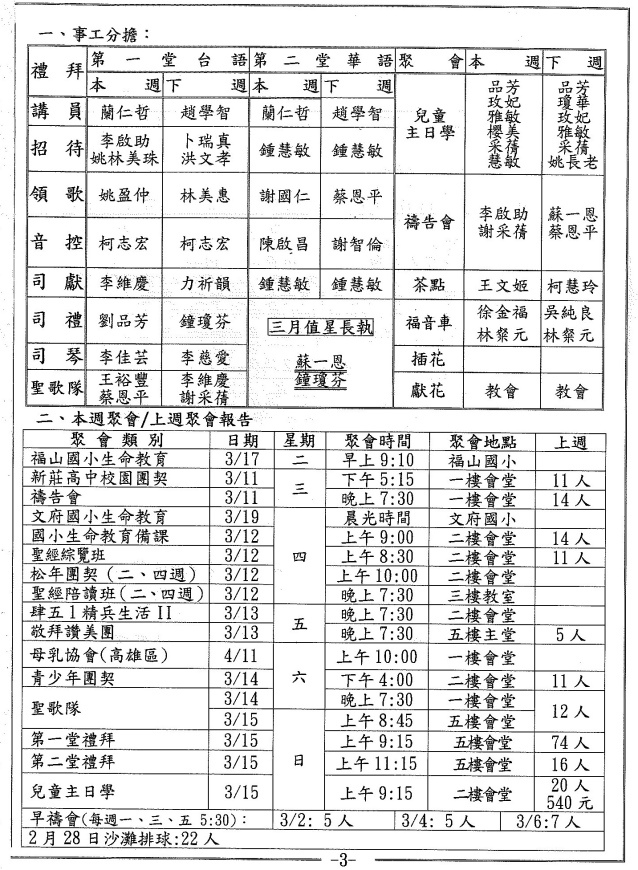 一、事工分擔：
禮拜 第一堂台語 第二堂華語 聚會 本週 下週
本週 下週 本週 下週
講員 蘭仁哲 趙學智 蘭仁哲 趙學智
招待 李啟助 姚林美珠 卜瑞真 洪文孝 鍾慧敏 鍾慧敏
兒童主日學 品芳 玫妃 雅敏 櫻美 采蒨 慧敏 品芳 瓊華 玫妃 雅敏 采蒨 姚長老
領歌 姚盈仲 林美惠 謝國仁 蔡恩平
禱告會 李啟助 謝采蒨 蘇一恩 蔡恩平
音控 柯志宏 柯志宏 陳啟昌 謝智倫
司獻 李維慶 力祈韻 鍾慧敏 鍾慧敏 茶點 王文姬 柯慧玲
司禮 劉品芳 鐘瓊芬
三月值星長執
蘇一恩
鐘瓊芬
福音車 徐金福 林粲元 吳純良 林粲元
司琴 李佳芸 李慈愛 插花
聖歌隊 王裕豐 蔡恩平 李維慶 謝采蒨 獻花 教會 教會
二、本週聚會/上週聚會報告
聚會類別 日期 星期 聚會時間 聚會地點 上週
福山國小生命教育 3/17 二 早上9:10 福山國小
新莊高中校園團契 3/11 三 下午5:15 一樓會堂 11人
禱告會 3/11 晚上7:30 一樓會堂 14人
文府國小生命教育 3/19 四 晨光時間 文府國小
國小生命教育備課 3/12 上午9:00 二樓會堂 14人
聖經綜覽班 3/12 上午8:30 二樓會堂 11人
松年團契(二、四週) 3/12 上午10:00 二樓會堂
聖經陪讀班(二、四週) 3/12 晚上7:30 三樓教室
肆五1精兵生活II 3/13 五 晚上7:30 二樓會堂
敬拜讚美團 3/13 晚上7:30 五樓主堂 5人
母乳協會(高雄區) 4/11 六 上午10:00 一樓會堂
青少年團契 3/14 下午4:00 二樓會堂 11人
聖歌隊 3/14 晚上7:30 一樓會堂 12人
3/15 日 上午8:45 五樓會堂
第一堂禮拜 3/15 上午9:15 五樓會堂 74人
第二堂禮拜 3/15 上午11:15 五樓會堂 16人
兒童主日學 3/15 上午9:15 二樓會堂 20人 540元
早禱會(每週一、三、五 5:30)： 3/2: 5人 3/4: 5人 3/6:7人
2月28日沙灘排球:22人
-3-